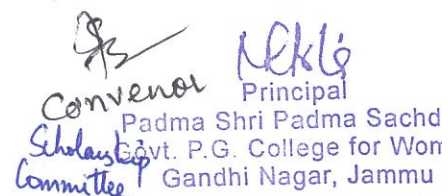 Convenor
Scholarship
Committee
Principal
Padma Shri Padma Sachd
Govt. P.G. College for Wom
Gandhi Nagar, Jammu